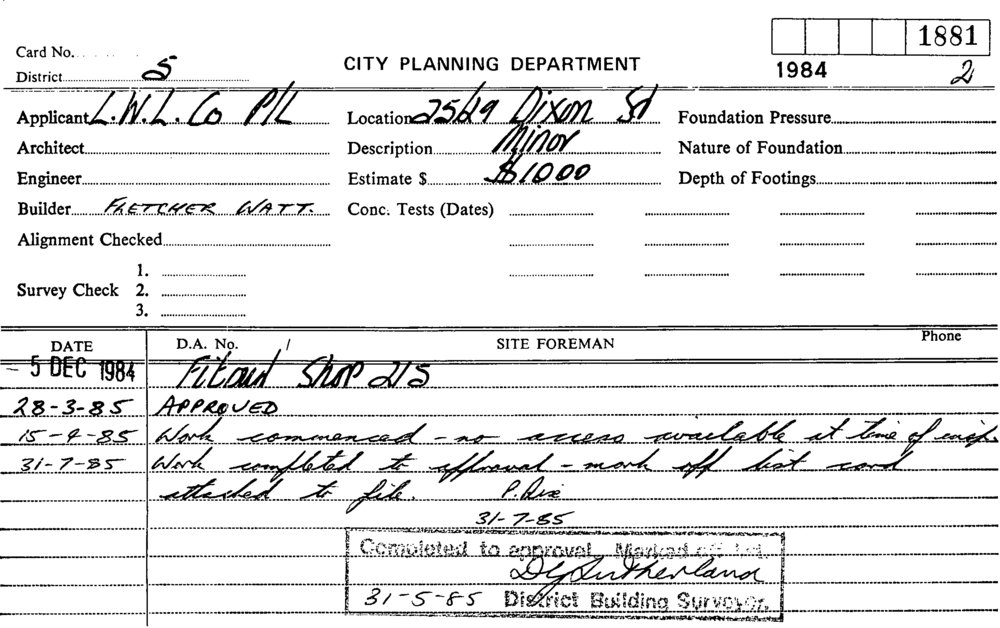 1881
Card No.
District 5
CITY PLANNING DEPARTMENT
1984 2
Applicant L.W.L. Co P/L Location 25/29 Dixon St Foundation Pressure
Architect Description Minor Nature of Foundation
Engineer Estimate $ $1000 Depth of Footings
Builder FLETCHER WATT. Conc. Tests (Dates)
Alignment Checked
1.
Survey Check 2.
3.
DATE D.A. No. / SITE FOREMAN Phone
- 5 DEC 1984 Fitout Shop 215
28-3-85 APPROVED
15-4-85 Work commenced - no access available at time of insp.
31-7-85 Work completed to approval - mark off list card
attached to file. P. Dix
31-7-85
Completed to approval. Marked off list.
DG Sutherland
31-5-85 District Building Surveyor.